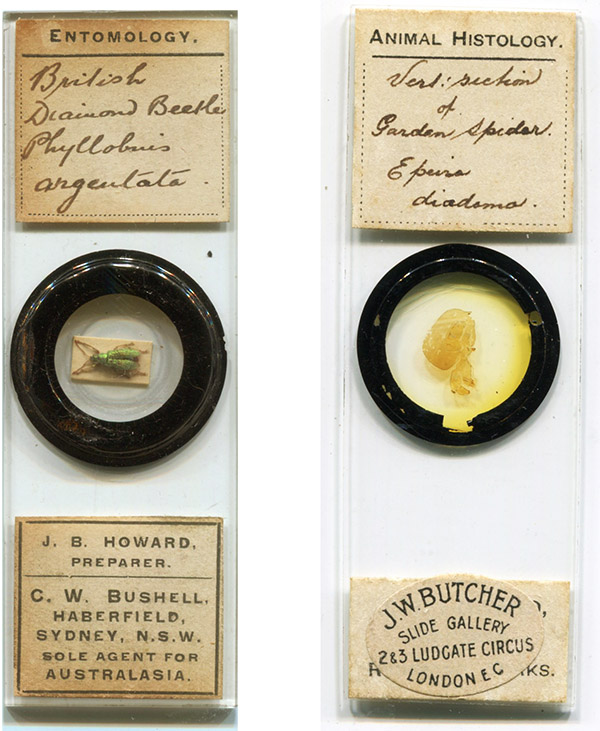 ENTOMOLOGY.
British
Diamond Beetle
Phyllobius
argentata.
J. B. HOWARD,
PREPARER.
C. W. BUSHELL,
HABERFIELD,
SYDNEY, N.S.W.
SOLE AGENT FOR
AUSTRALASIA.
ANIMAL HISTOLOGY.
Vert: section
of
Garden Spider.
Epeira
diadema.
J.W. BUTCHER
SLIDE GALLERY
2&3 LUDGATE CIRCUS
LONDON EC